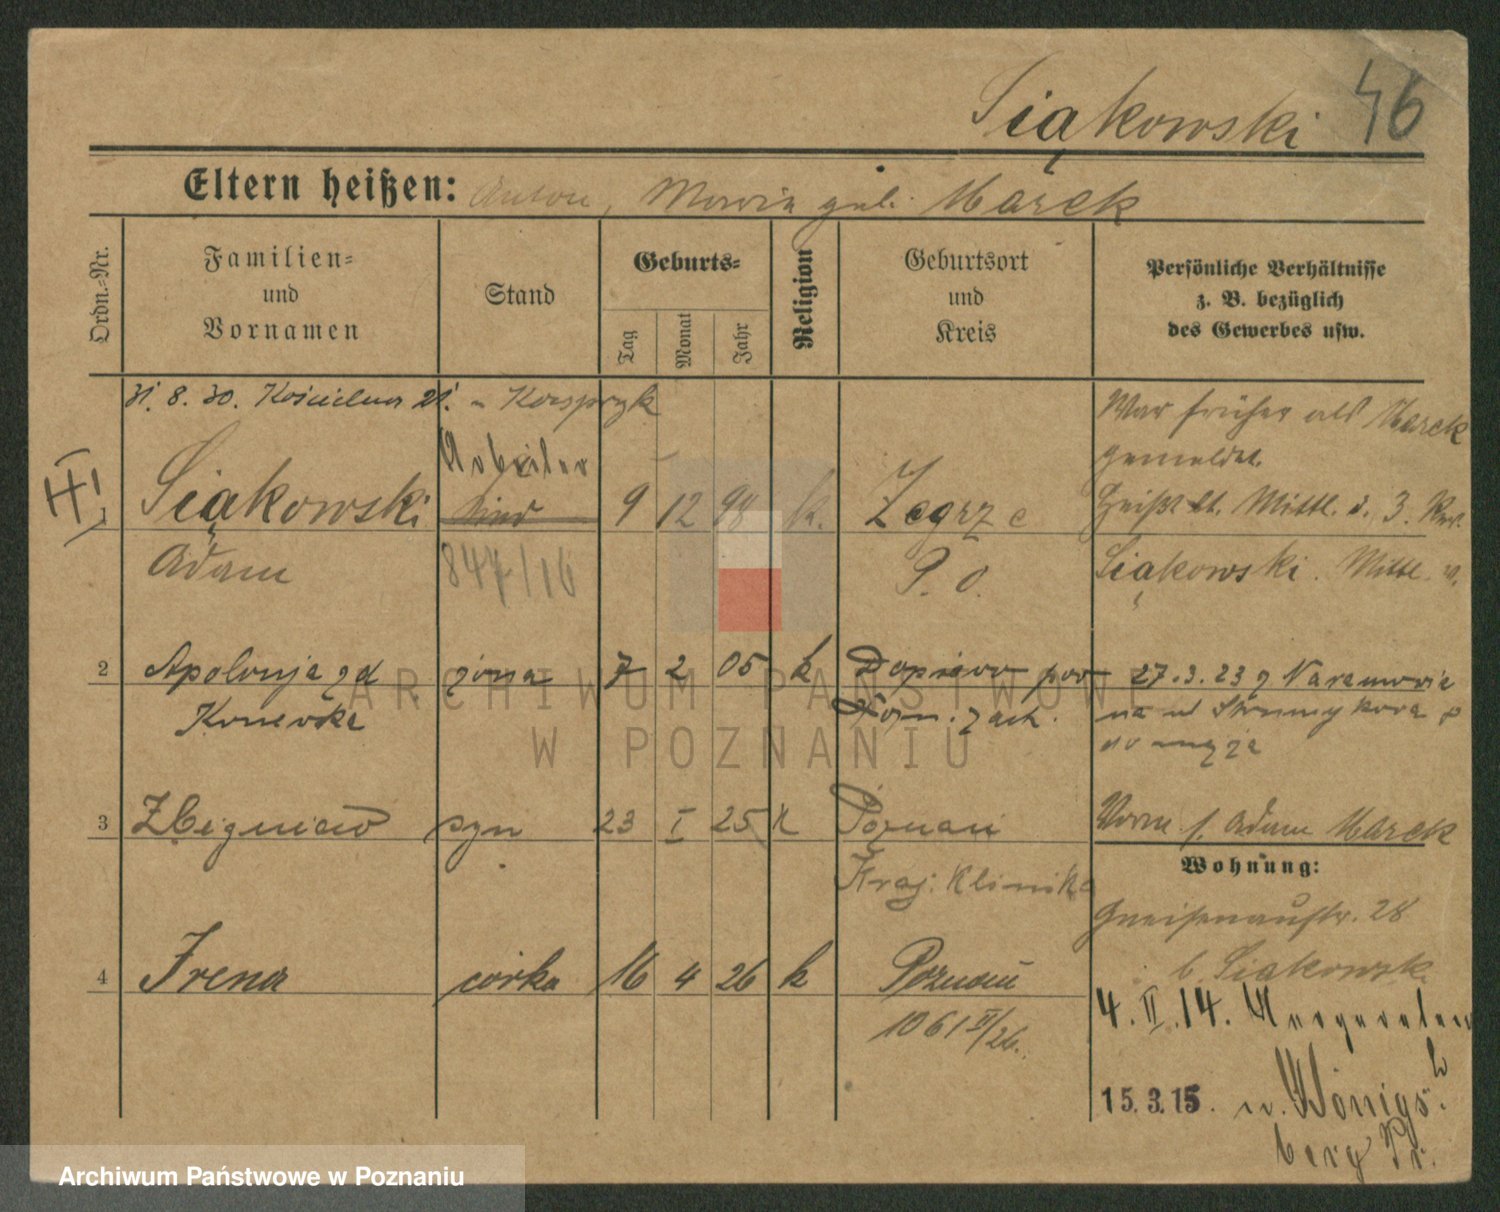 Siąkowski 46
Eltern heißen: Anton, Maria geb. Marek
Ordn.-Nr.
Familien-
und
Vornamen
Stand
Geburts-
Tag
Monat
Jahr
Religion
Geburtsort
und
Kreis
Persönliche Verhältnisse
z. B. bezüglich
des Gewerbes usw.
31. 8. 30.
War früher als Marek
gemeldet.
Arbeiter
1 Siąkowski 9 12 98 k. Zegrze
Heißt lt. Mittl. d. 3. Rev.
Adam 847/16 P. O.
Siąkowski. Mittl. v.
2 Apolonja zd żona 7 2 05 k
27.3.23 z Naramowic
3 Zbigniew syn 23 I 25 k Poznań
Vorm. f. Adam Marek
Wohnung:
Kraj. Klinika
Gneisenaustr. 28
b. Siakowsk
4 Irena córka 16 4 26 k Poznań
1061 II/26.
4. II. 14.
15. 3. 15. n. Königs-
berg Pr.
ARCHIWUM PAŃSTWOWE
W POZNANIU
Archiwum Państwowe w Poznaniu